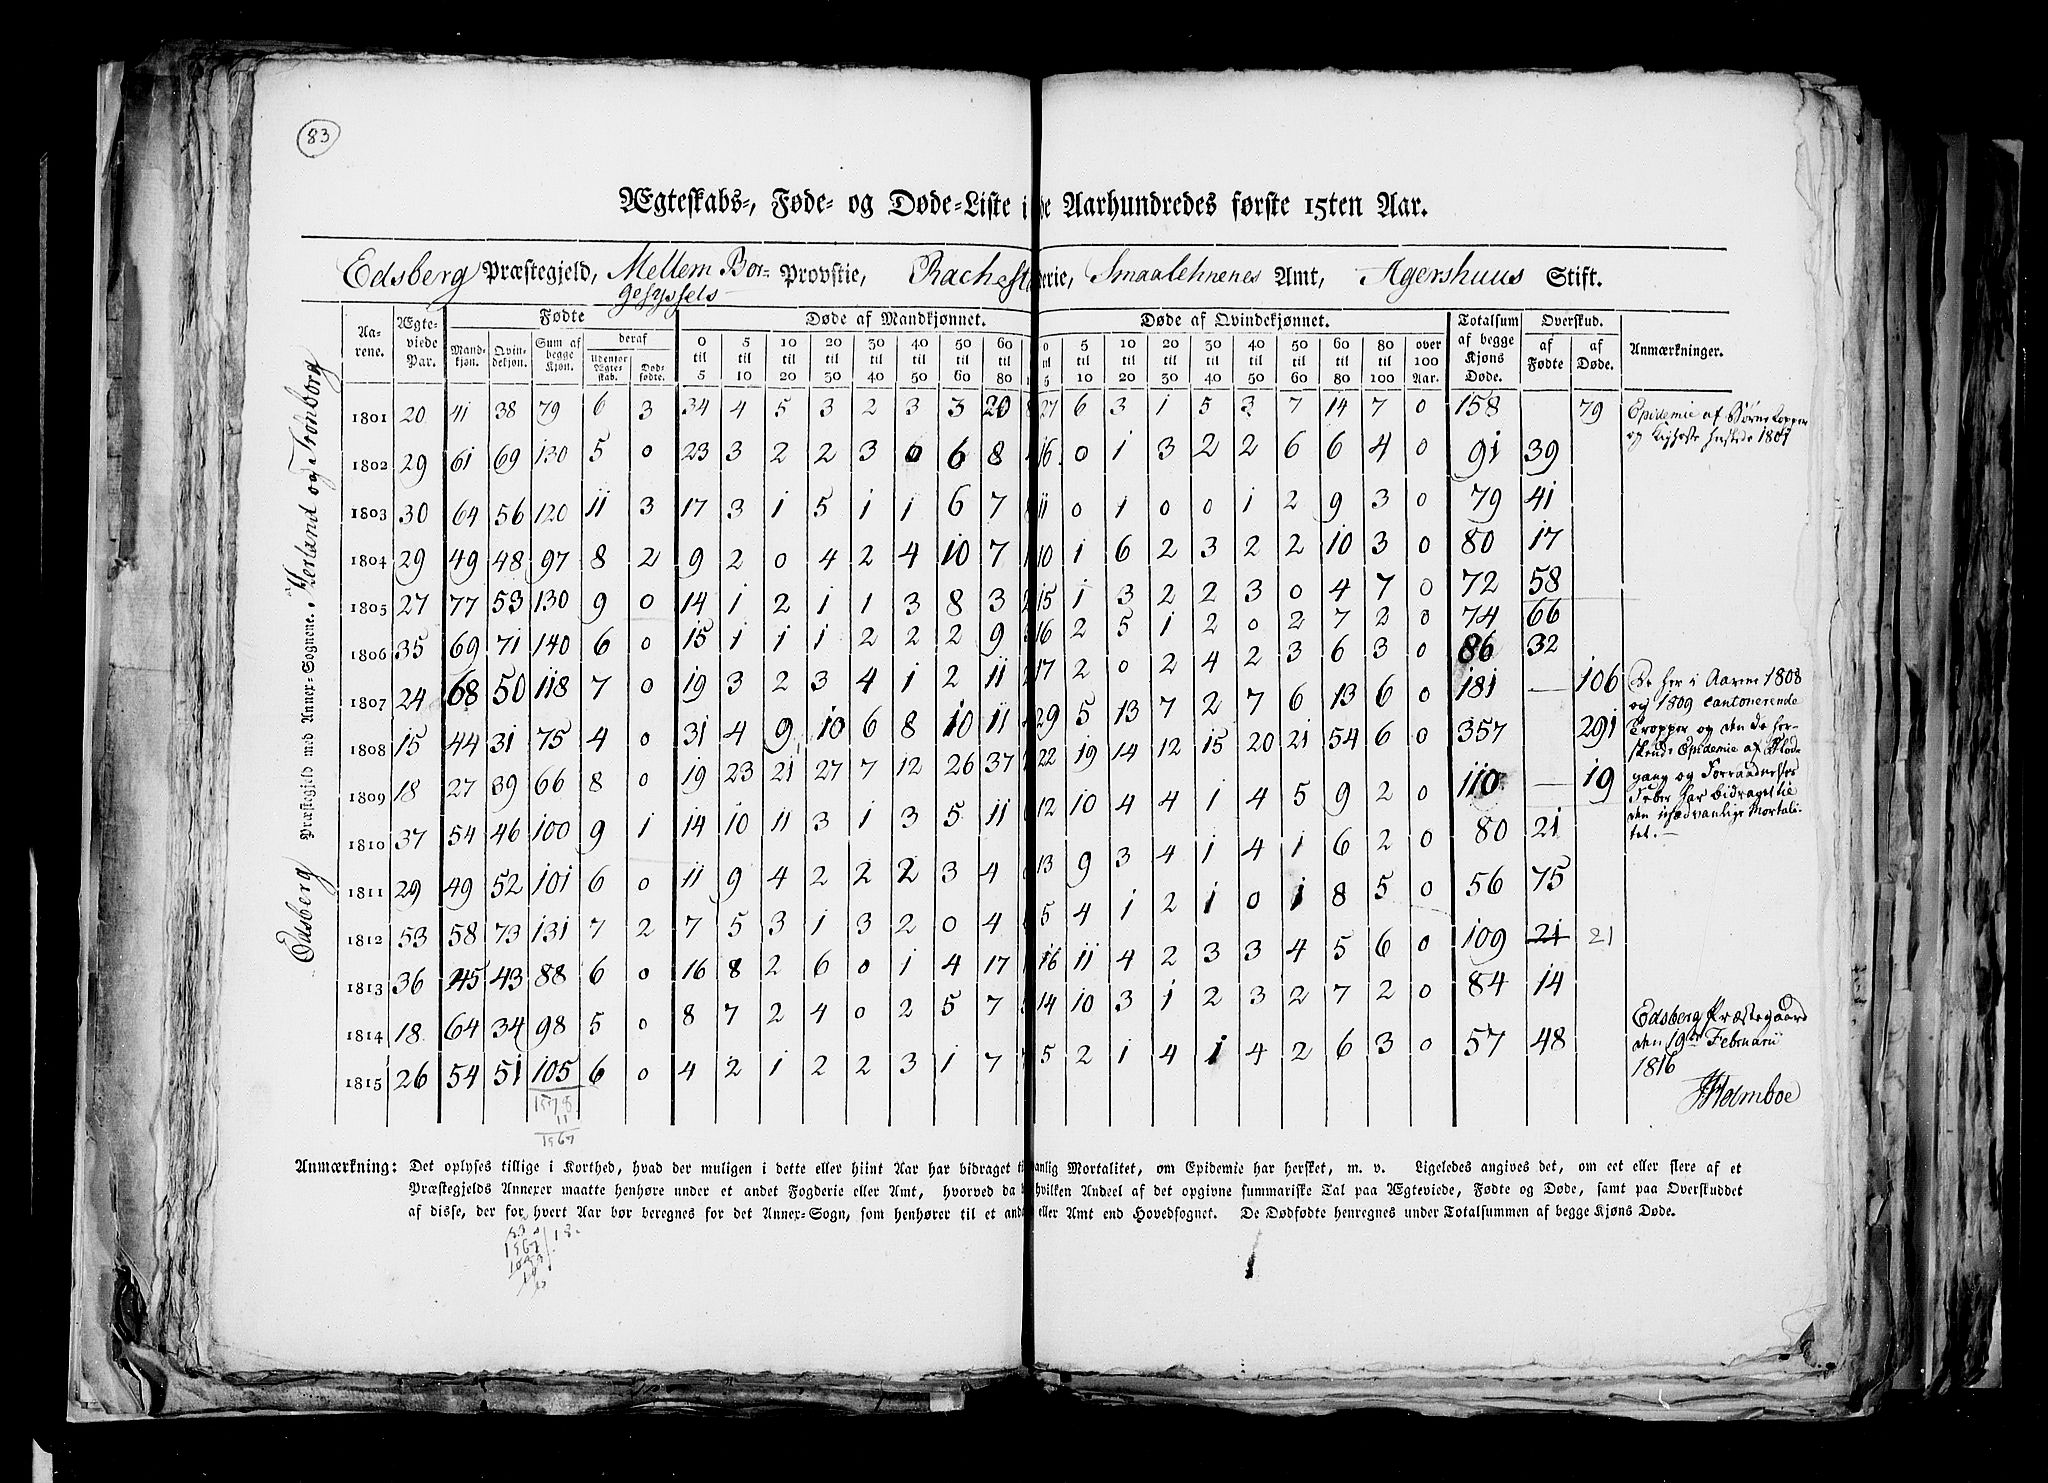 83
Ægteskabs-, Føde- og Døde-Liste i de Aarhundredes første 15ten Aar.
Edsberg Præstegjeld, Mellem Bor- Provstie, Rachest derie, Smaalehnenes Amt, Agershuus Stift.
gesyssels
Edsberg Præstegjeld med Annex-Sognene. Herland og Trönborg
Aa- Ægte- Fødte Døde af Mandkjønnet. Døde af Qvindekjønnet. Totalsum Overskud.
rene. viede Mand- Qvin- Sum af deraf 0 5 10 20 30 40 50 60 0 5 10 20 30 40 50 60 80 over af begge af af Anmærkninger.
Par. kjøn. dekjøn. begge Udenfor Død- til til til til til til til til til til til til til til til til til 100 Kjøns Fødte Døde.
Kjøn. Ægte- fødte. 5 10 20 30 40 50 60 80 5 10 20 30 40 50 60 80 100 Aar. Døde.
skab.
1801 20 41 38 79 6 3 34 4 5 3 2 3 3 20 27 6 3 1 5 3 7 14 7 0 158 79 Epidemie af Börnekopper
1802 29 61 69 130 5 0 23 3 2 2 3 0 6 8 16 0 1 3 2 2 6 6 4 0 91 39 og 1801
1803 30 64 56 120 11 3 17 3 1 5 1 1 6 7 11 0 1 0 0 1 2 9 3 0 79 41
1804 29 49 48 97 8 2 9 2 0 4 2 4 10 7 10 1 6 2 3 2 2 10 3 0 80 17
1805 27 77 53 130 9 0 14 1 2 1 1 3 8 3 15 1 3 2 2 3 0 4 7 0 72 58
1806 35 69 71 140 6 0 15 1 1 1 2 2 2 9 16 2 5 1 2 0 2 7 2 0 74 66
1807 24 68 50 118 7 0 19 3 2 3 4 1 2 11 17 2 0 2 4 2 3 6 3 0 86 32
1808 15 44 31 75 4 0 31 4 9 10 6 8 10 11 29 5 13 7 2 7 6 13 6 0 181 — 106 De her i Aarene 1808
og 1809 cantonerende
1809 18 27 39 66 8 0 19 23 21 27 7 12 26 37 22 19 14 12 15 20 21 54 6 0 357 291 Tropper og den da her-
skende Epidemie af Blod-
1810 37 54 46 100 9 1 14 10 11 3 1 3 5 11 12 10 4 4 1 4 5 9 2 0 110 — 19 gang og Forraadnelses
Feber har bidraget til
den usædvanlige Mortali-
tet. —
1811 29 49 52 101 6 0 11 9 4 2 2 2 3 4 13 9 3 4 1 4 1 6 2 0 80 21
1812 53 58 73 131 7 2 7 5 3 1 3 2 0 4 5 4 1 2 1 0 1 8 5 0 56 75
1813 36 45 43 88 6 0 16 8 2 6 0 1 4 17 16 11 4 2 3 3 4 5 6 0 109 21 21
1814 18 64 34 98 5 0 8 7 2 4 0 2 5 7 14 10 3 1 2 3 2 7 2 0 84 14
1815 26 54 51 105 6 0 4 2 1 2 2 3 1 7 5 2 1 4 1 4 2 6 3 0 57 48
Edsberg Præstegaard
den 19de Februarii
1816
Holmboe
1578
11
1567
Anmærkning: Det oplyses tillige i Korthed, hvad der muligen i dette eller hiint Aar har bidraget t anlig Mortalitet, om Epidemie har hersket, m. v. Ligeledes angives det, om eet eller flere af et
Præstegjelds Annexer maatte henhøre under et andet Fogderie eller Amt, hvorved da hvilken Andeel af det opgivne summariske Tal paa Ægteviede, Fødte og Døde, samt paa Overskuddet
af disse, der for hvert Aar bør beregnes for det Annex-Sogn, som henhører til et and eller Amt end Hovedsognet. De Dødfødte henregnes under Totalsummen af begge Kjøns Døde.
1567